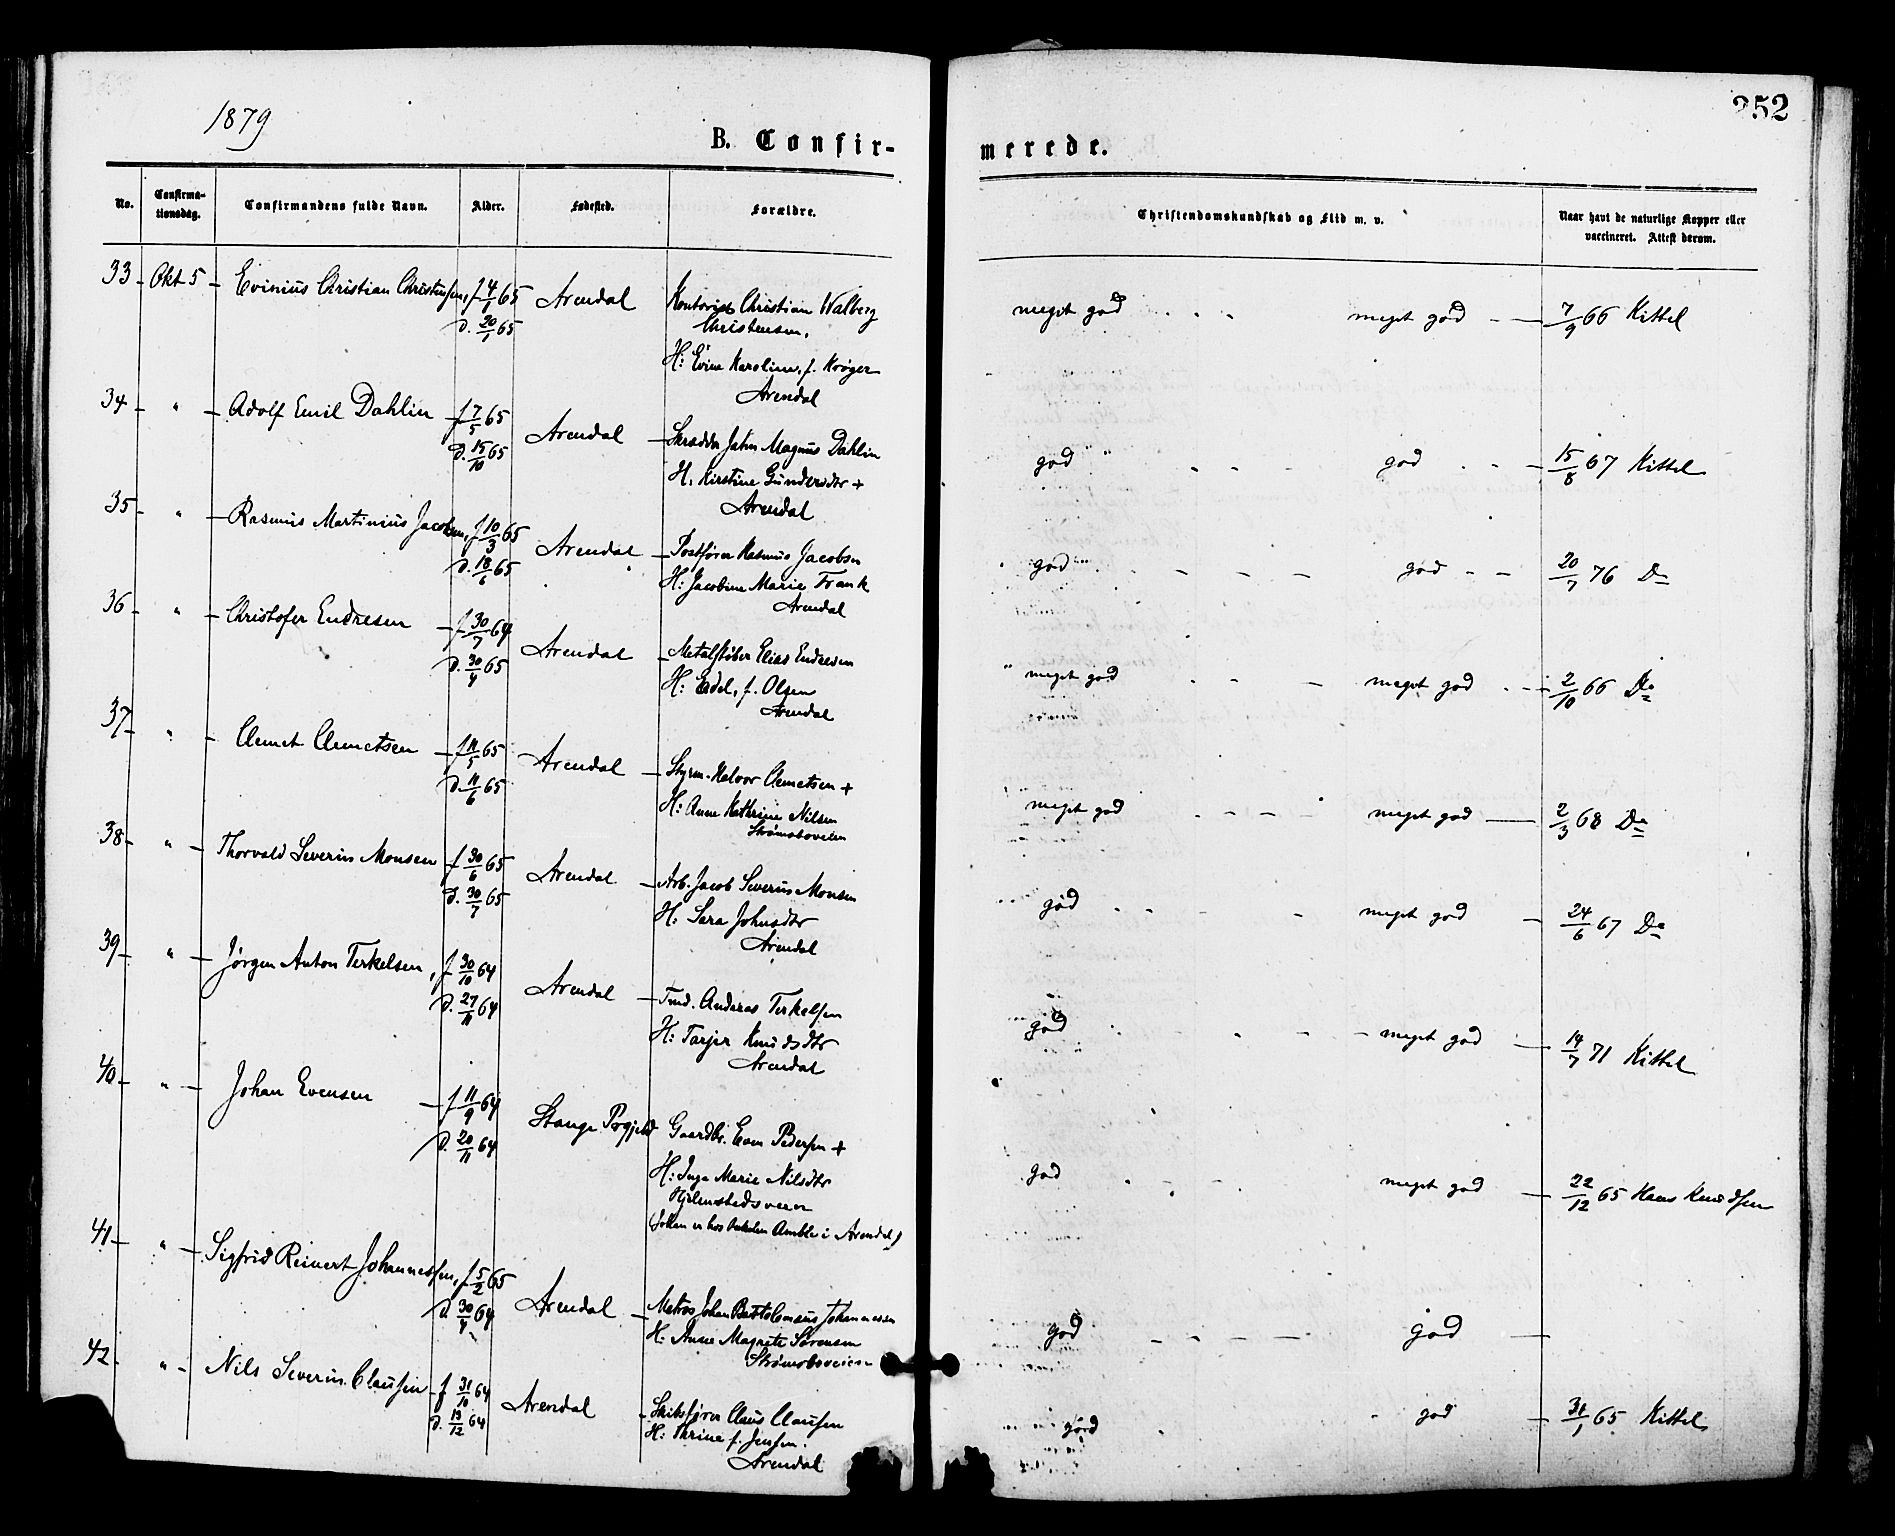 1879
252
B. Confirmerede.
No. Confirmationsdag. Confirmandens fulde Navn. Alder. Fødested. Forældre. Christendomskundskab og Flid m. v. Naar havt de naturlige Kopper eller vaccineret. Attest derom.
33 Okt 5 Evinius Christian Christensen, f 4/1 65 Arendal Kontorist Christian Walberg meget god meget god 7/9 66 Kittel
d. 20/1 65 Christensen,
H: Evine Karoline, f. Krøger
Arendal
34 " Adolf Emil Dahlin f 7/5 65 Arendal Skrædder Johan Magnus Dahlin god god 15/8 67 Kittel
d. 15/10 65 H. Kirstine Gundersdtr +
Arendal
35 " Rasmus Martinius Jacobsen, f 10/3 65 Arendal Postfører Rasmus Jacobsen god god 20/7 76 Do
d. 18/6 65 H: Jacobine Marie Frank
Arendal
36 " Christofer Endresen f 30/7 64 Arendal Metalstøber Elias Endresen meget god meget god 2/10 66 Do
d. 30/4 65 H: Edel, f. Olsen
Arendal
37 " Clemet Clemetsen f 11/5 65 Arendal Styrm. Halvor Clemetsen + meget god meget god 2/3 68 Do
d. 11/6 65 H: Anne Kathrine Nilsen
Strømsboveien
38 " Thorvald Severin Monsen f 30/6 65 Arendal Arb. Jacob Severin Monsen god meget god 24/6 67 Do
d. 30/7 65 H: Sara Johnsdtr
Arendal
39 " Jørgen Anton Terkelsen, f 30/10 64 Arendal Tmd. Andreas Terkelsen god meget god 14/7 71 Kittel
d. 27/11 64 H: Tarjer Knudsdtr
Arendal
40 " Johan Evensen f 11/9 64 Stange Prgjeld Gaardbr. Even Pedersen + god meget god 22/12 65 Hans Knudsen
d. 20/11 64 H: Inge Marie Nilsdtr
(Johan er hos Amble i Arendal)
41 " Sigfrid Reinert Johannessen, f 5/2 65 Arendal Matros Johan Bartolomæus Johannessen god god
d. 30/4 64 H: Anne Magrete Sørensen
Strømsboveien
42 " Nils Severin Clausen f 31/10 64 Arendal Skibsfører Claus Clausen god god 31/1 65 Kittel
d. 19/12 64 H: Trine f. Jensen.
Arendal